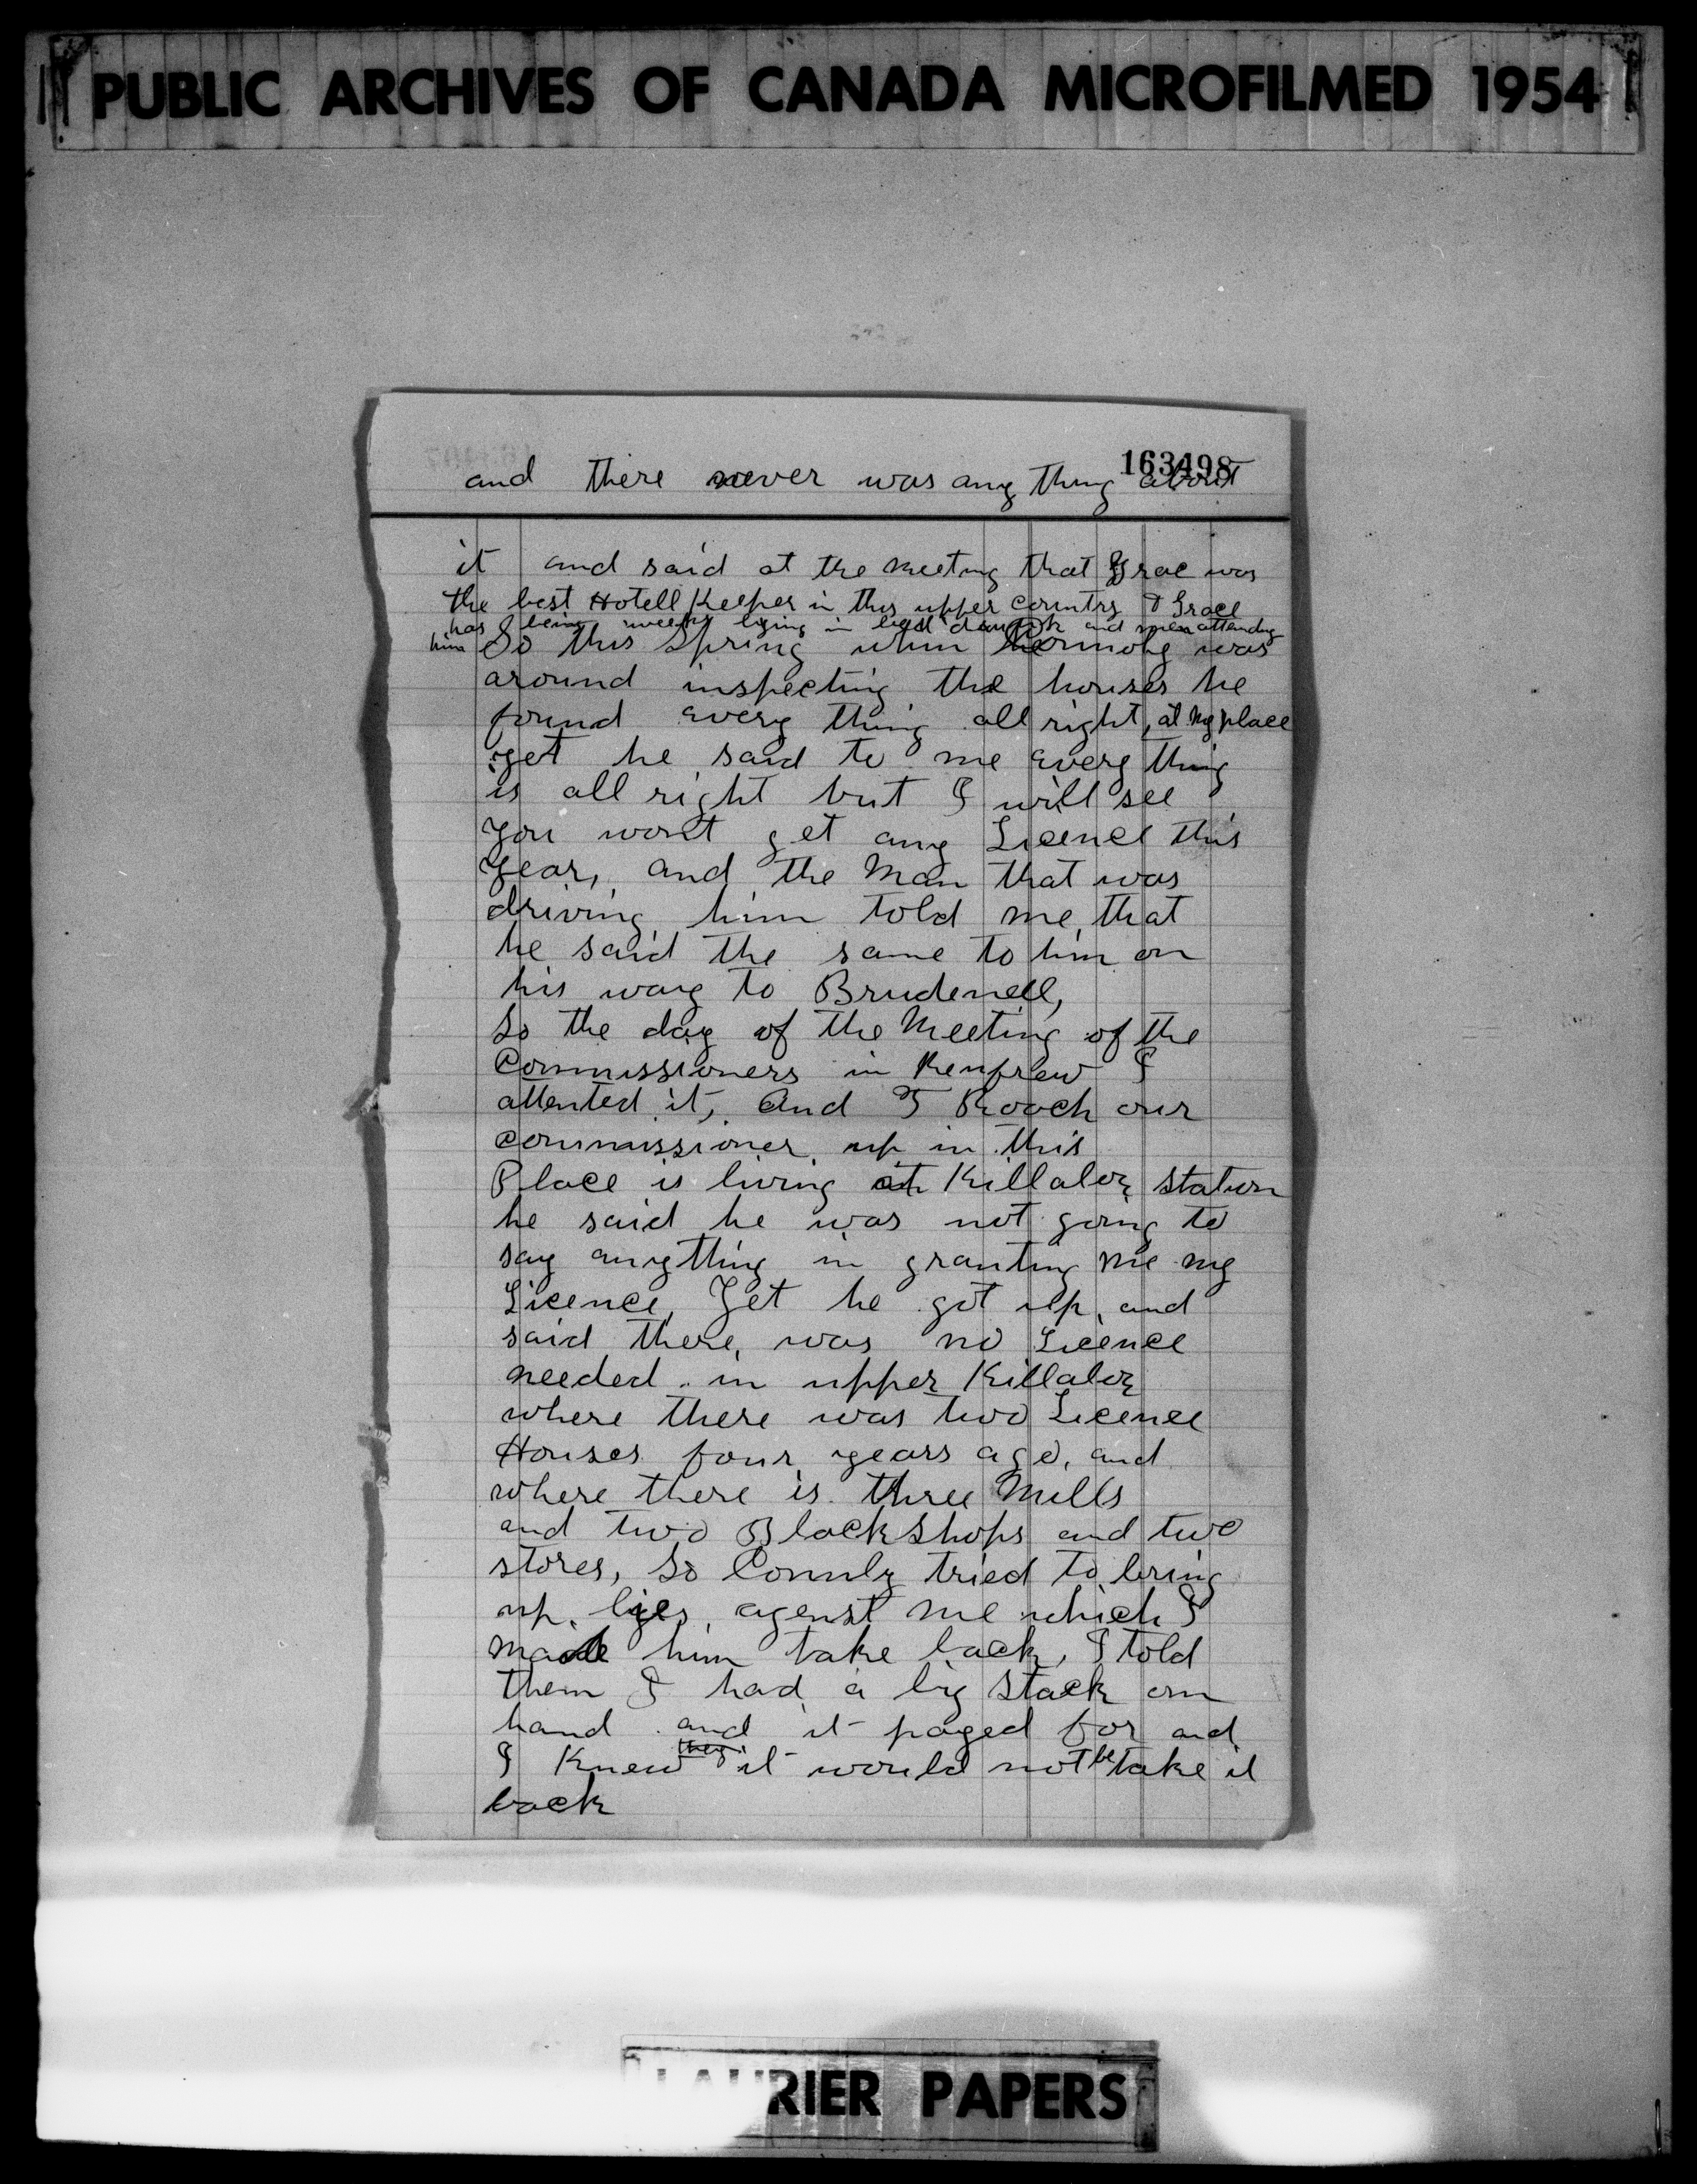 PUBLIC ARCHIVES OF CANADA MICROFILMED 1954
163498
and there never was any thing about
it and said at the Meeting that Grace was
the best Hotell Keeper in this upper country & Grace
has being weeks lying in bed drunk and men attending
him So this Spring when was
around inspecting the houses he
found every thing all right, at My place
yet he said to me every thing
is all right but I will see
you wont get any Licence this
year, and the Man that was
driving him told me that
he said the same to him on
his way to Brudenell,
So the day of the Meeting of the
Commissioners in Renfrew I
attented it, And T Rooch our
commissioner up in this
Place is living at Killaloe station
he said he was not going to
say anything in granting me my
Licence, Yet he got up and
said there, was no Licence
needed in upper Killaloe
where there was two Licence
Houses four years ago, and
where there is three Mills
and two Black Shops and two
stores, So Connly tried to bring
up lies agenst me which I
made him take back, I told
them I had a big stock on
hand and it payed for and
I Knew they it would not be take it
back
LAURIER PAPERS